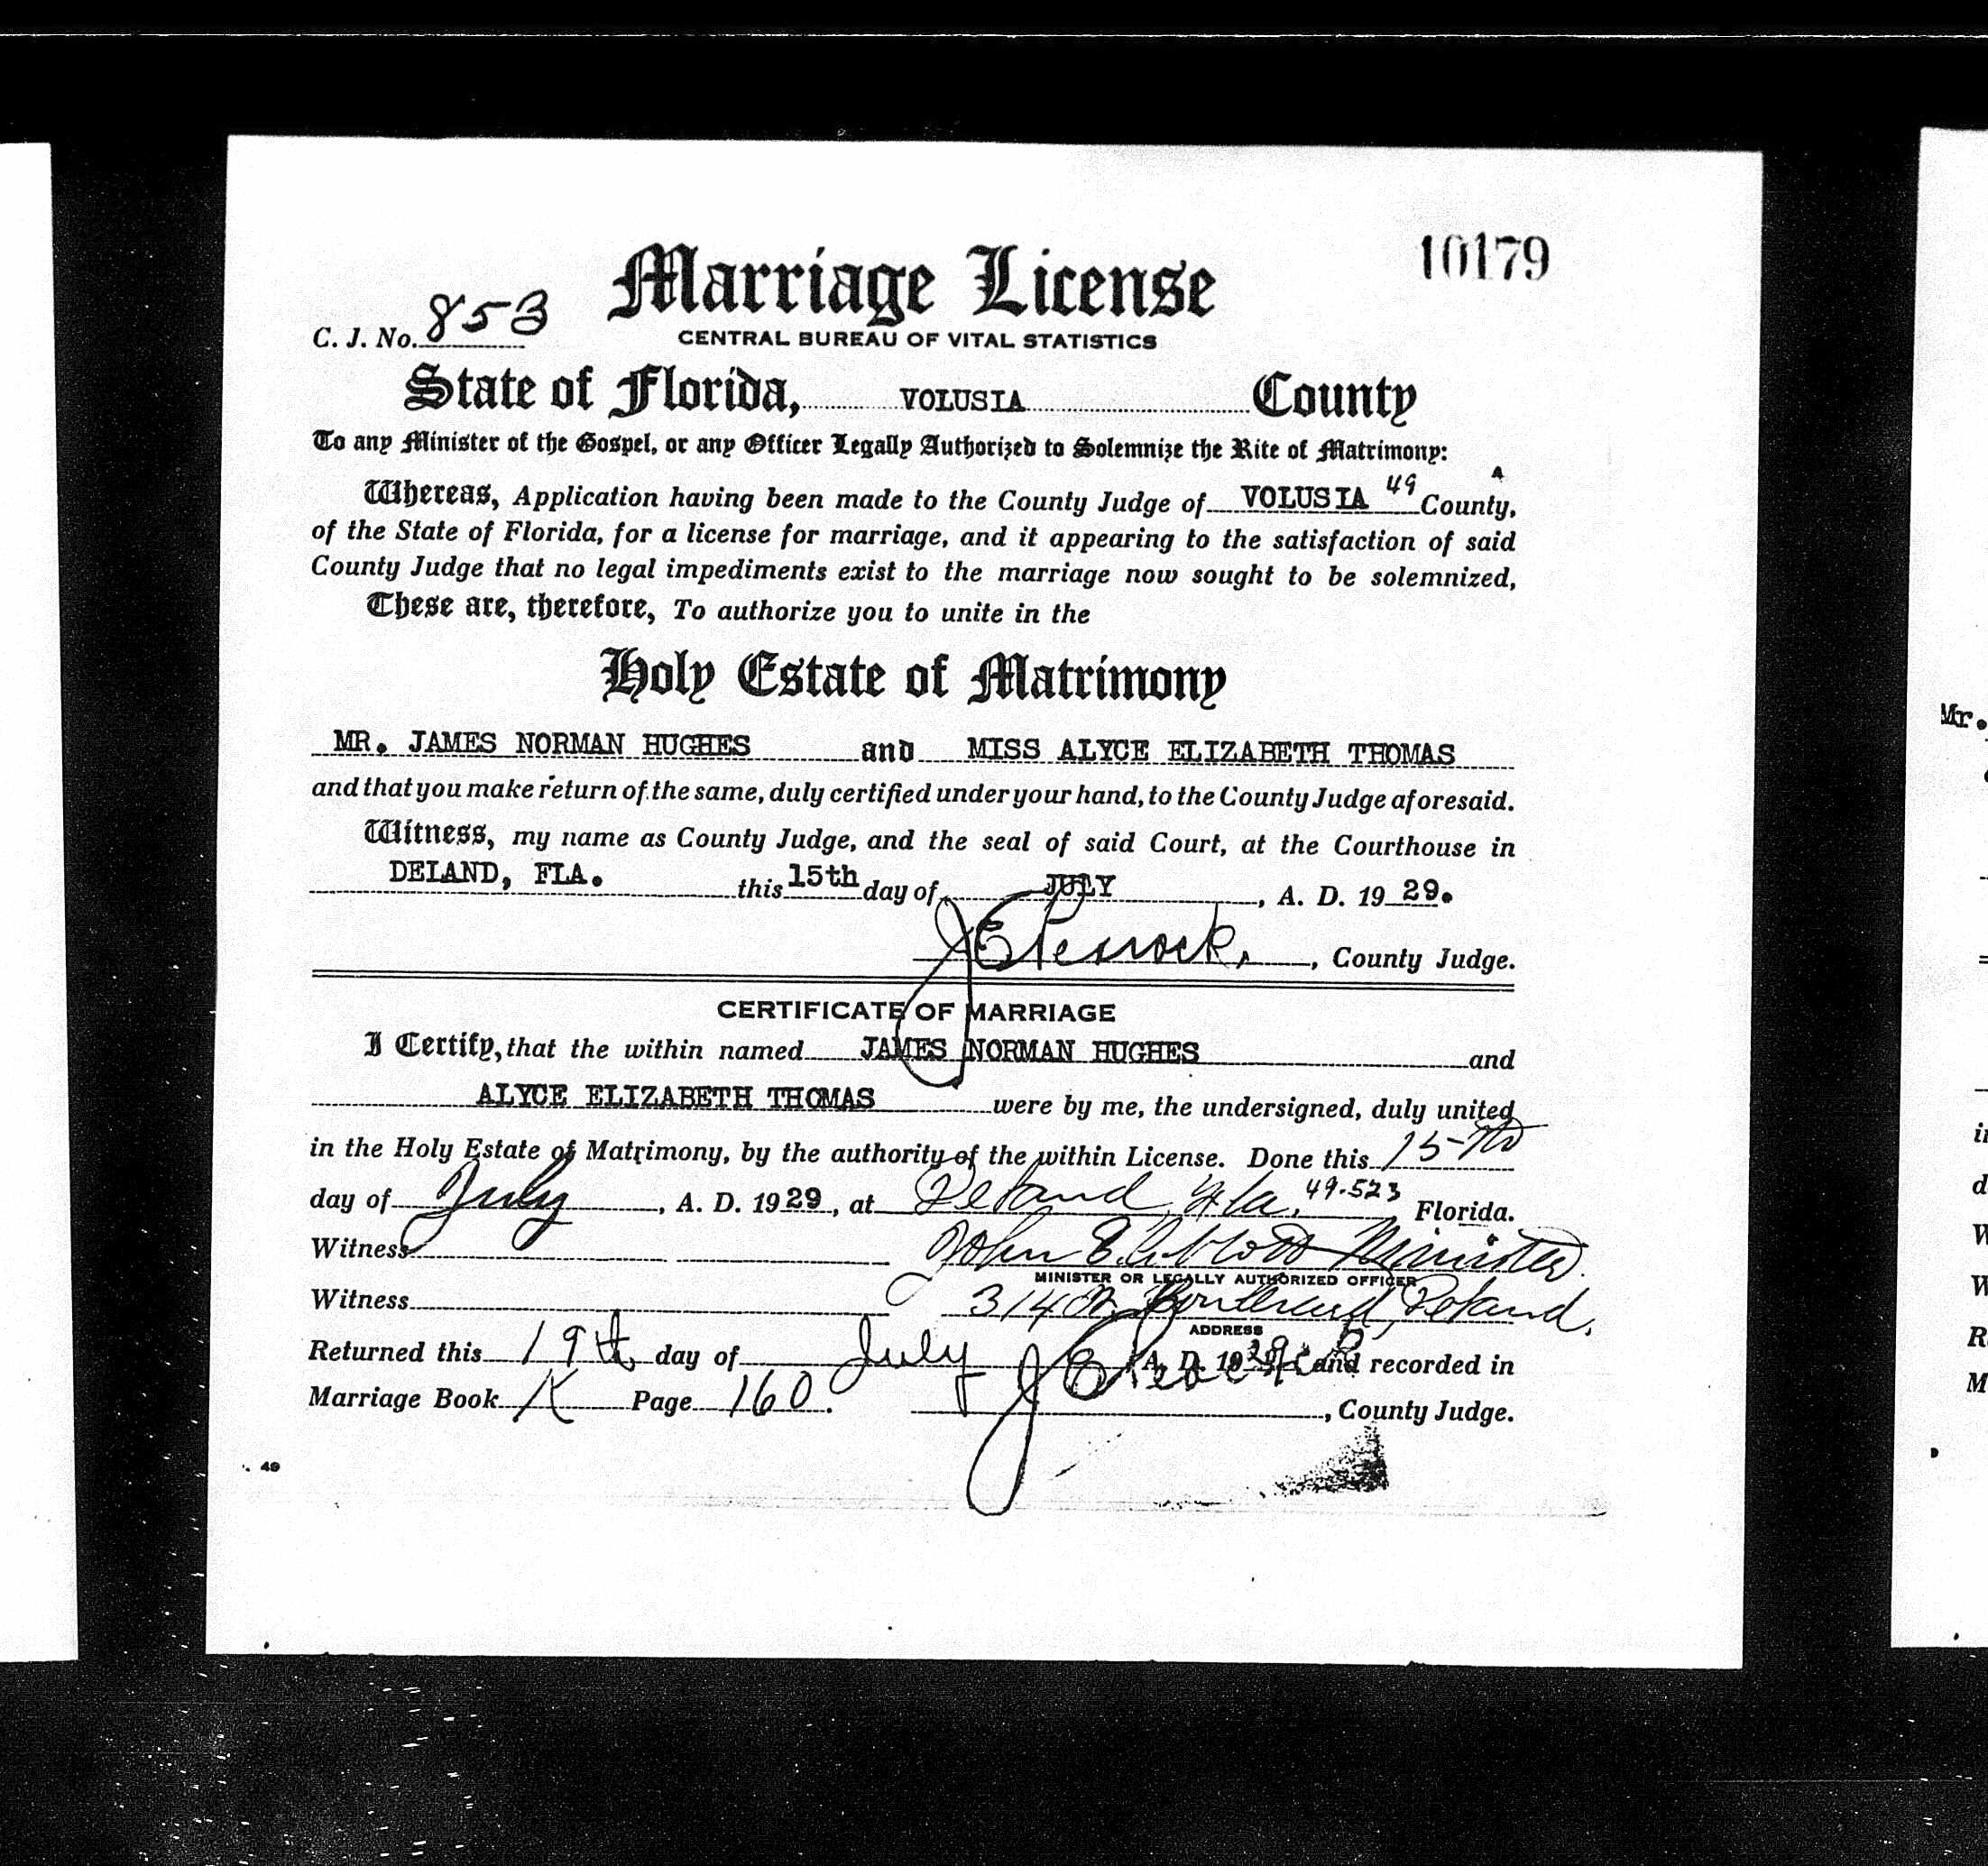 10179
Marriage License
C. J. No. 853
CENTRAL BUREAU OF VITAL STATISTICS
State of Florida, VOLUSIA County
To any Minister of the Gospel, or any Officer Legally Authorized to Solemnize the Rite of Matrimony:
Whereas, Application having been made to the County Judge of VOLUSIA 49 County,
of the State of Florida, for a license for marriage, and it appearing to the satisfaction of said
County Judge that no legal impediments exist to the marriage now sought to be solemnized,
These are, therefore, To authorize you to unite in the
Holy Estate of Matrimony
MR. JAMES NORMAN HUGHES and MISS ALYCE ELIZABETH THOMAS
and that you make return of the same, duly certified under your hand, to the County Judge aforesaid.
Witness, my name as County Judge, and the seal of said Court, at the Courthouse in
DELAND, FLA. this 15th day of JULY, A. D. 19 29.
J E Peacock, County Judge.
CERTIFICATE OF MARRIAGE
I Certify, that the within named JAMES NORMAN HUGHES and
ALYCE ELIZABETH THOMAS were by me, the undersigned, duly united
in the Holy Estate of Matrimony, by the authority of the within License. Done this 15-th
day of July, A. D. 19 29, at Deland, Fla. 49-523 Florida.
Witness John Minister
MINISTER OR LEGALLY AUTHORIZED OFFICER
Witness 314 N. Boulevard, Deland.
ADDRESS
Returned this 19th day of July A. D. 19 29 and recorded in
Marriage Book K Page 160. J E Peacock, County Judge.
49
Mr.